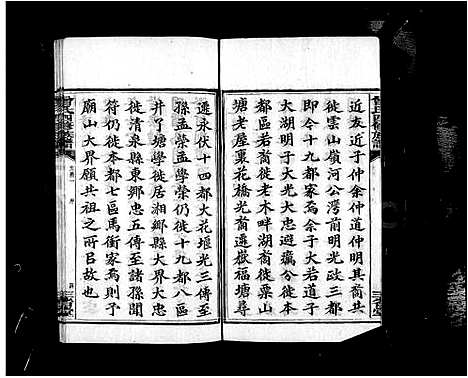 近友近子仲余仲道仲明其共
徙雲山嶺河公灣前明光政三都
即今十九都家焉余子大若道子
大湖明子大光大忠避藏分徙本
都區若裔徙老木畔湖裔徙栗山
塘老屋棗花橋光裔遷嶽福塘尋
遷永伏十四都大花堰光三傳至
孫孟榮孟學榮仍徙十九都八區
井丁塘學徙居湘鄉縣大界大忠
徙清泉縣東鄉忠五傳至諸孫聞
符仍徙本都七區馬衝家焉則予
廟山大界願共祖之所自故也